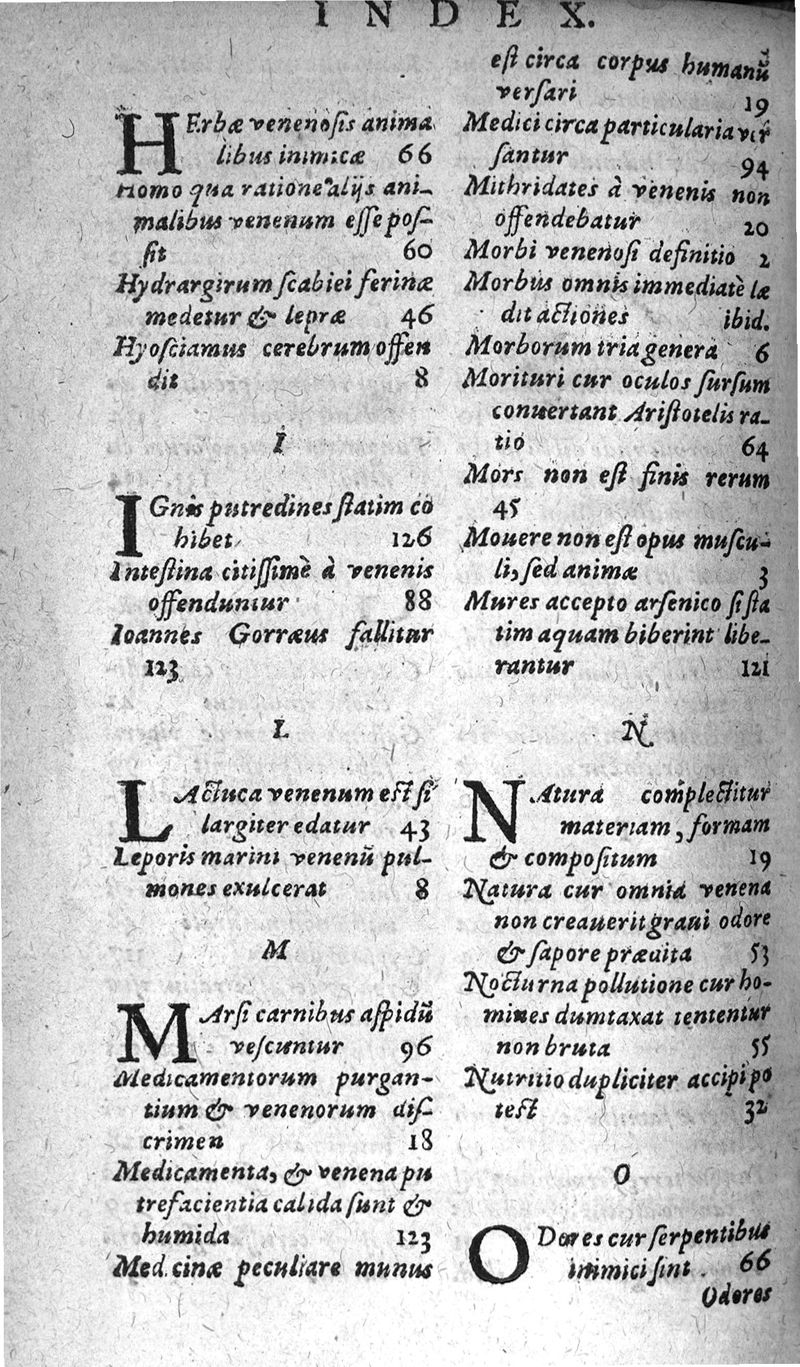 INDEX.
HErbæ venenoſis anima
libus inimicæ 66
Homo qua ratione alijs ani-
malibus venenum eſſe poſ-
ſit 60
Hydrargirum ſcabiei ferinæ
medetur & lepræ 46
Hyoſciamus cerebrum offen
dit 8
I
IGnis putredines ſtatim co
hibet 126
Inteſtina citiſſimè à venenis
offenduntur 88
Ioannes Gorræus fallitur
123
L
LActuca venenum eſt ſi
largiter edatur 43
Leporis marini venenū pul-
mones exulcerat 8
M
MArſi carnibus aſpidū
veſcuntur 96
Medicamentorum purgan-
tium & venenorum diſ-
crimen 18
Medicamenta, & venena pu
trefacientia calida ſunt &
humida 123
Medicinæ peculiare munus
eſt circa corpus humanū
verſari 19
Medici circa particularia ver
ſantur 94
Mithridates à venenis non
offendebatur 20
Morbi venenoſi definitio 2
Morbus omnis immediatè læ
dit actiones ibid.
Morborum tria genera 6
Morituri cur oculos ſurſum
conuertant Ariſtotelis ra-
tio 64
Mors non eſt finis rerum
45
Mouere non eſt opus muſcu-
li, ſed animæ 3
Mures accepto arſenico ſi ſta
tim aquam biberint libe-
rantur 121
N
NAtura complectitur
materiam, formam
& compoſitum 19
Natura cur omnia venena
non creauerit graui odore
& ſapore prædita 53
Nocturna pollutione cur ho-
mines dumtaxat tententur
non bruta 55
Nutritio dupliciter accipi po
teſt 32
O
ODores cur ſerpentibus
inimici ſint. 66
Odores